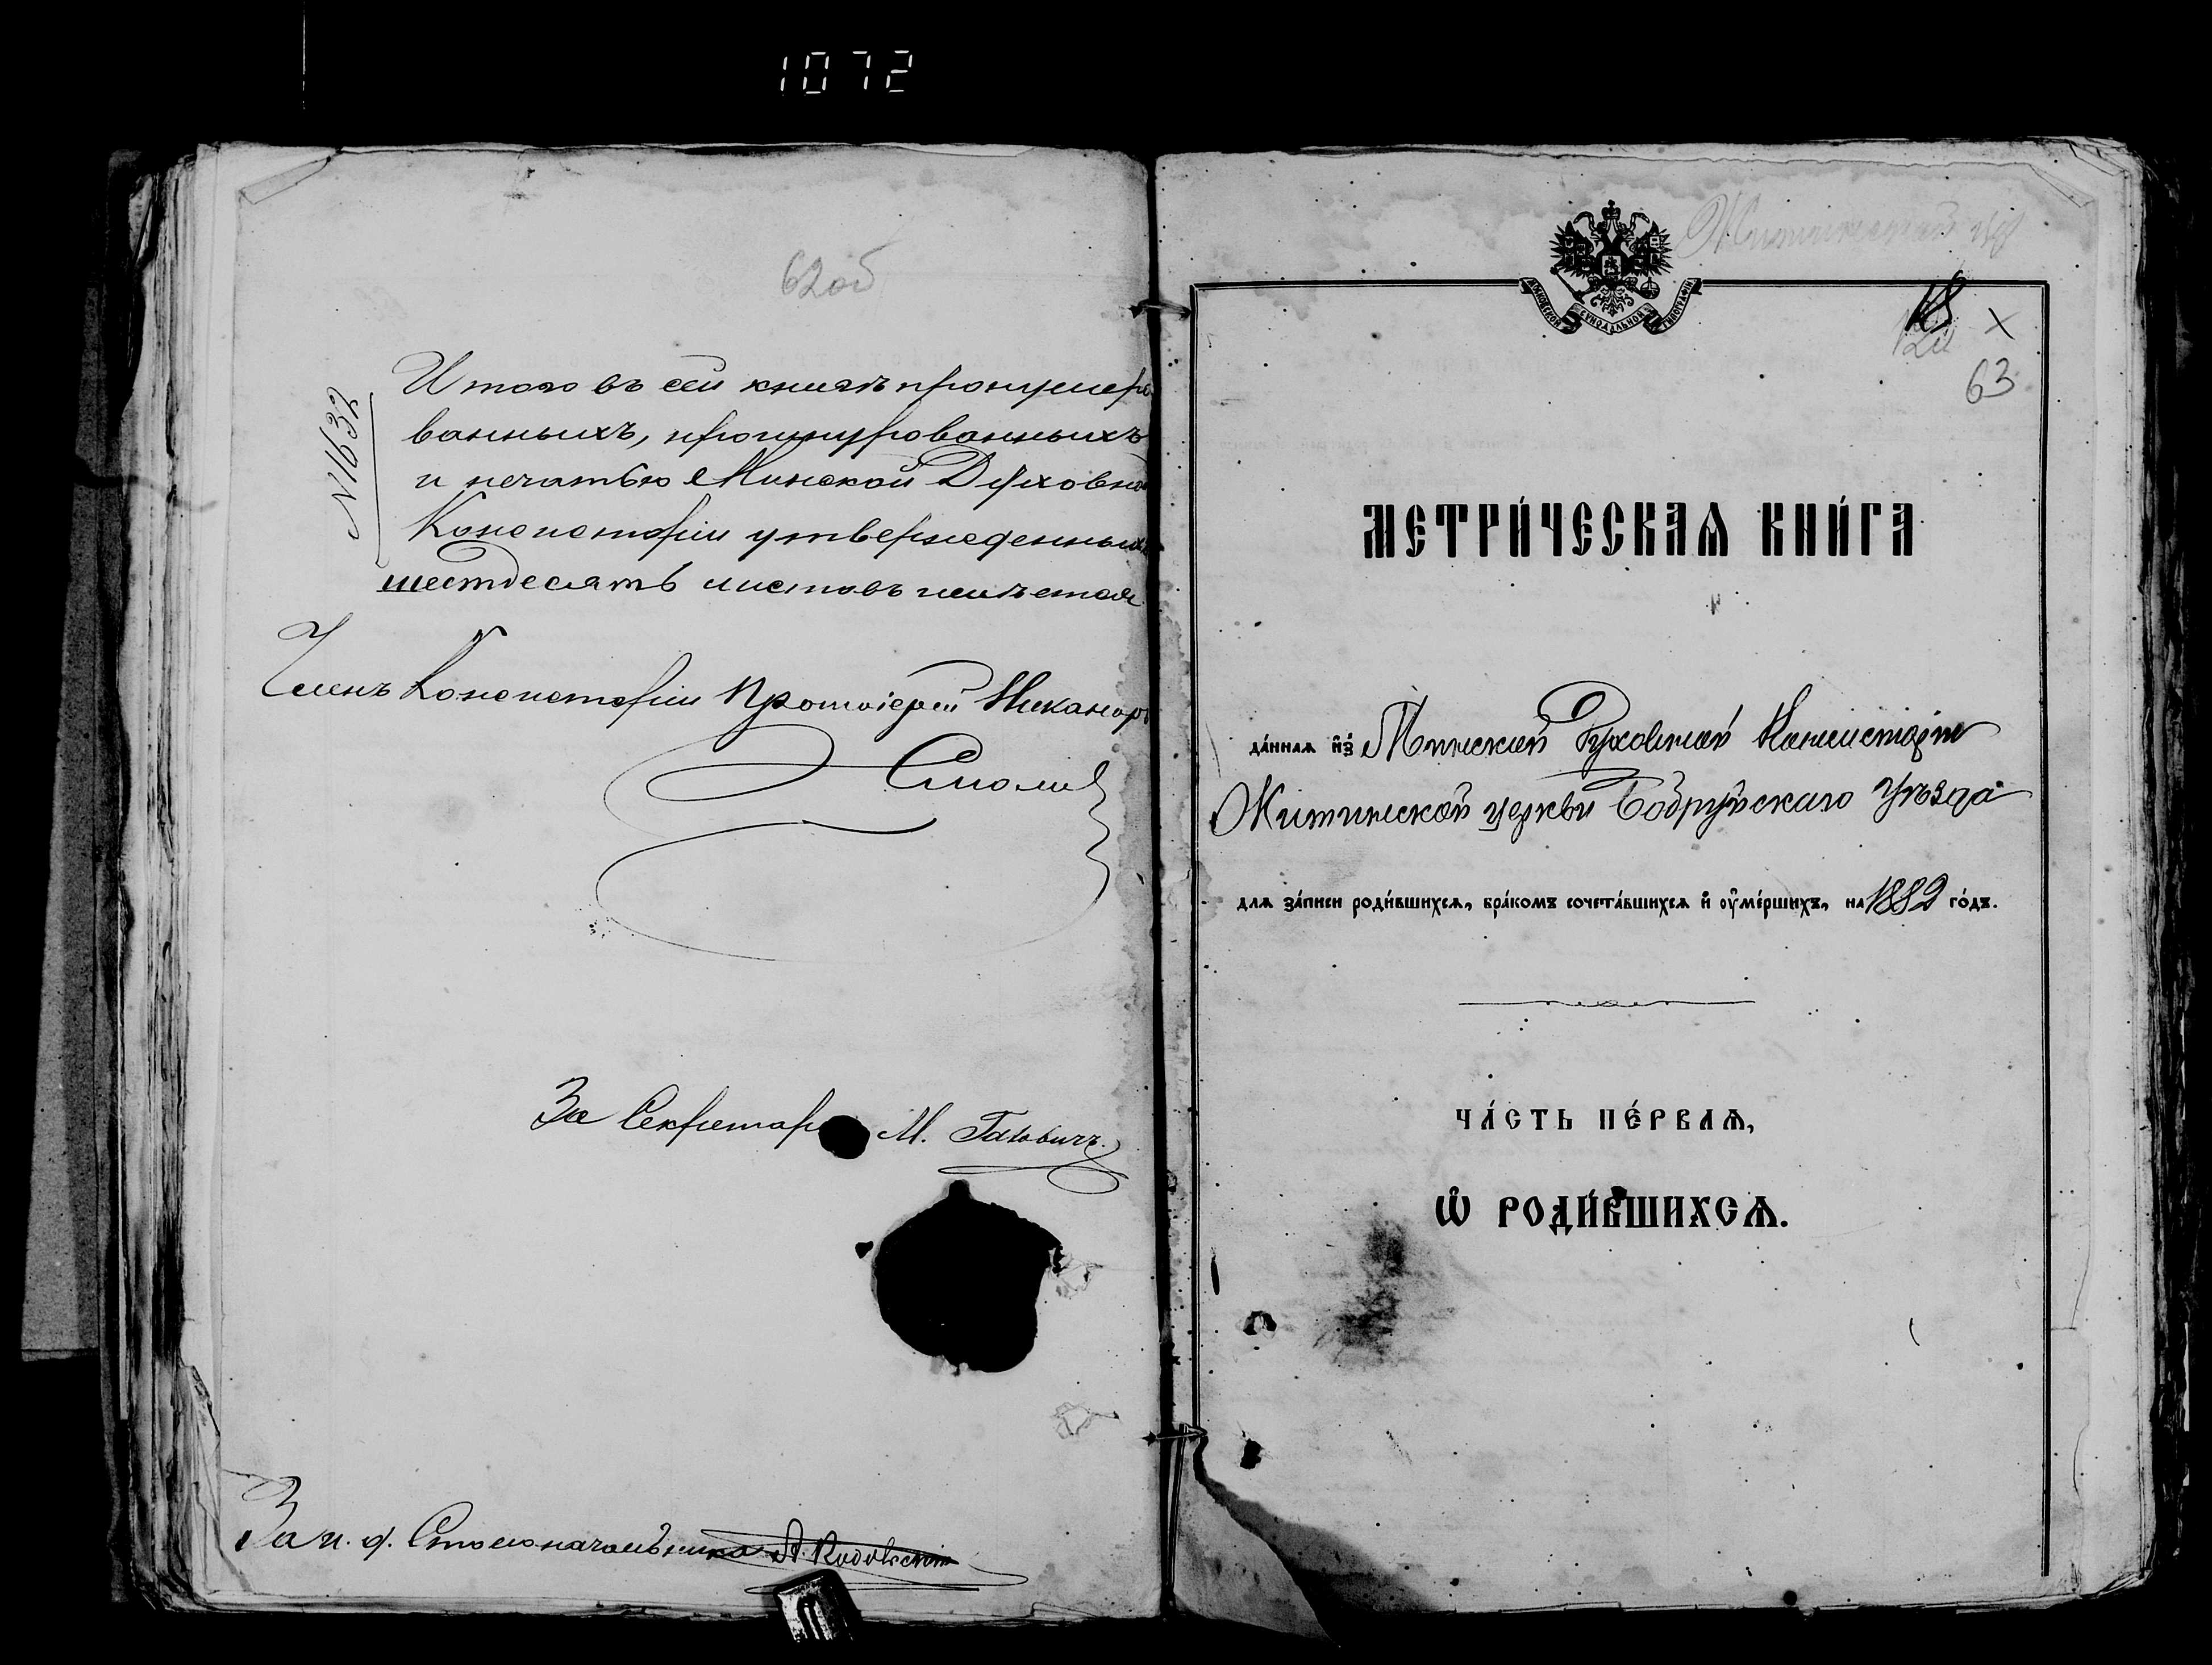 1072
62об
№1632
Итого въ сей книгѣ пронумеро
ванныхъ, прошнурованныхъ
и печатью Минской Духовной
Консисторіи утвержденныхъ
шестдесятъ листовъ имѣется
Членъ Консисторіи Протоіерей Никаноръ
Смоличъ
За Секретаря М.
За и. д. Столоначальника А.
Житинской цер
МОСКОВСКОЙ СѴНОДАЛЬНОЙ ТИПОГРАФІИ
х
63
МЕТРИ́ЧЕСКАѦ КНИ́ГА
да́ннаѧ и҆зъ Минской Духовной Консисторіи
Житинской церкви Бобруйскаго Уѣзда
длѧ за́писи роди́вшихсѧ, бра́комъ сочета́вшихсѧ и҆ ѹ҆ме́ршихъ, на 1882 го́дъ.
ЧА́СТЬ ПЕ́РВАѦ,
Ѽ РОДИ́ВШИХСѦ.